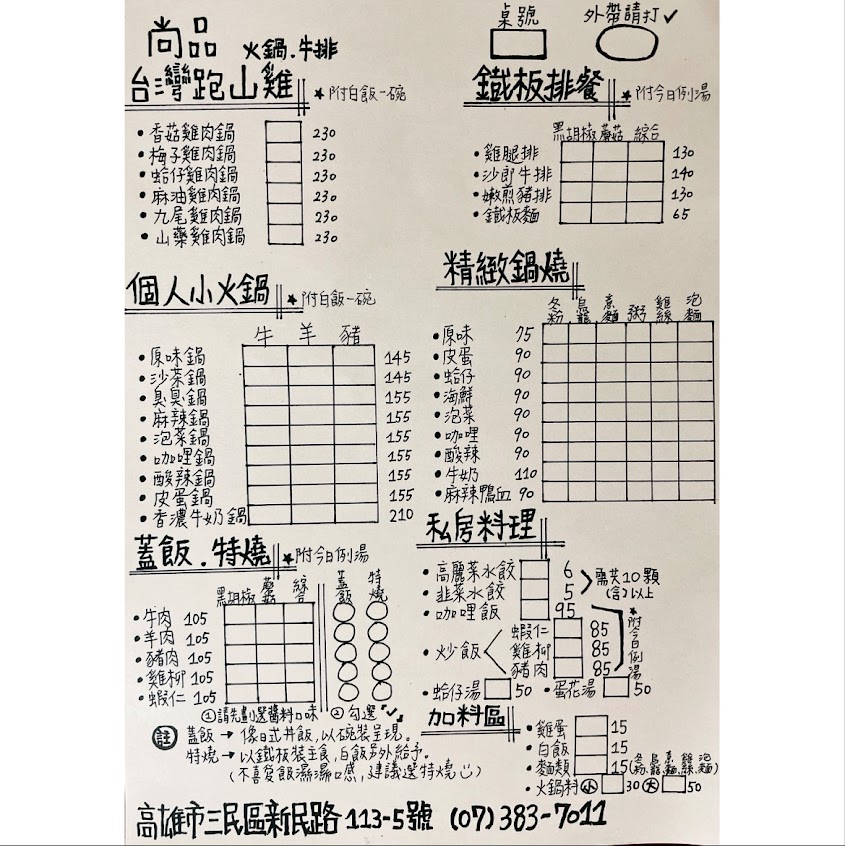 尚品 火鍋.牛排
桌號 外帶請打✓
台灣跑山雞 ★附白飯一碗
•香菇雞肉鍋 230
•梅子雞肉鍋 230
•蛤仔雞肉鍋 230
•麻油雞肉鍋 230
•九尾雞肉鍋 230
•山藥雞肉鍋 230
鐵板排餐 ★附今日例湯
黑胡椒 蘑菇 綜合
•雞腿排 130
•沙朗牛排 140
•嫩煎豬排 130
•鐵板麵 65
個人小火鍋 ★附白飯一碗
牛 羊 豬
•原味鍋 145
•沙茶鍋 145
•臭臭鍋 155
•麻辣鍋 155
•泡菜鍋 155
•咖哩鍋 155
•酸辣鍋 155
•皮蛋鍋 155
•香濃牛奶鍋 210
精緻鍋燒
冬粉 烏龍 意麵 粥 雞絲 泡麵
•原味 75
•皮蛋 90
•蛤仔 90
•海鮮 90
•泡菜 90
•咖哩 90
•酸辣 90
•牛奶 110
•麻辣鴨血 90
蓋飯.特燒 ★附今日例湯
黑胡椒 蘑菇 綜合 蓋飯 特燒
•牛肉 105
•羊肉 105
•豬肉 105
•雞柳 105
•蝦仁 105
①請先劃選醬料口味 ②勾選「✓」
註 蓋飯→像日式丼飯,以碗裝呈現。
特燒→以鐵板裝主食,白飯另外給予。
(不喜愛飯濕濕口感,建議選特燒)
私房料理
•高麗菜水餃 6
•韭菜水餃 5
需共10顆(含)以上
•咖哩飯 95
•炒飯
蝦仁 85
雞柳 85
豬肉 85
★附今日例湯
•蛤仔湯 50 •蛋花湯 50
加料區
•雞蛋 15
•白飯 15
•麵類 15(冬粉.烏龍.意麵.雞絲.泡麵)
•火鍋料 小 30 大 50
高雄市三民區新民路113-5號 (07)383-7011